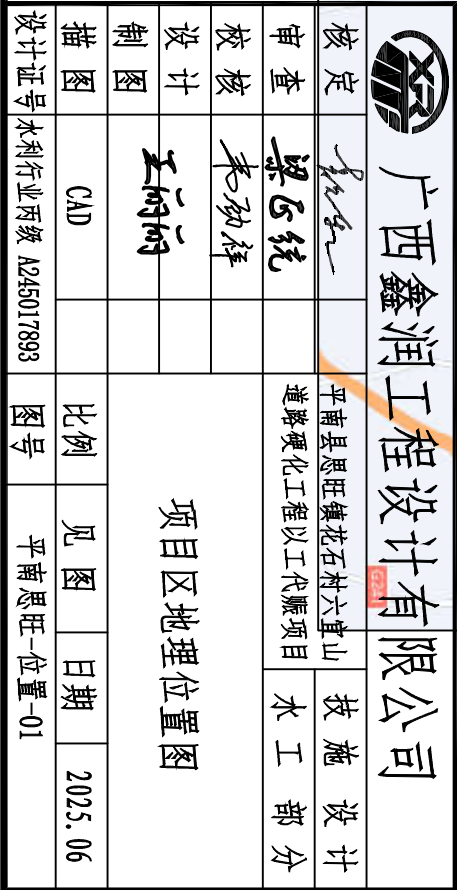 XR
广西鑫润工程设计有限公司
核定
平南县思旺镇花石村六宜山
道路硬化工程以工代赈项目
技施 设计
审查
水工 部分
校核
设计
项目区地理位置图
制图
描图 CAD
比例 见图 日期 2025.06
设计证号 水利行业丙级 A245017893
图号 平南思旺-位置-01
G241